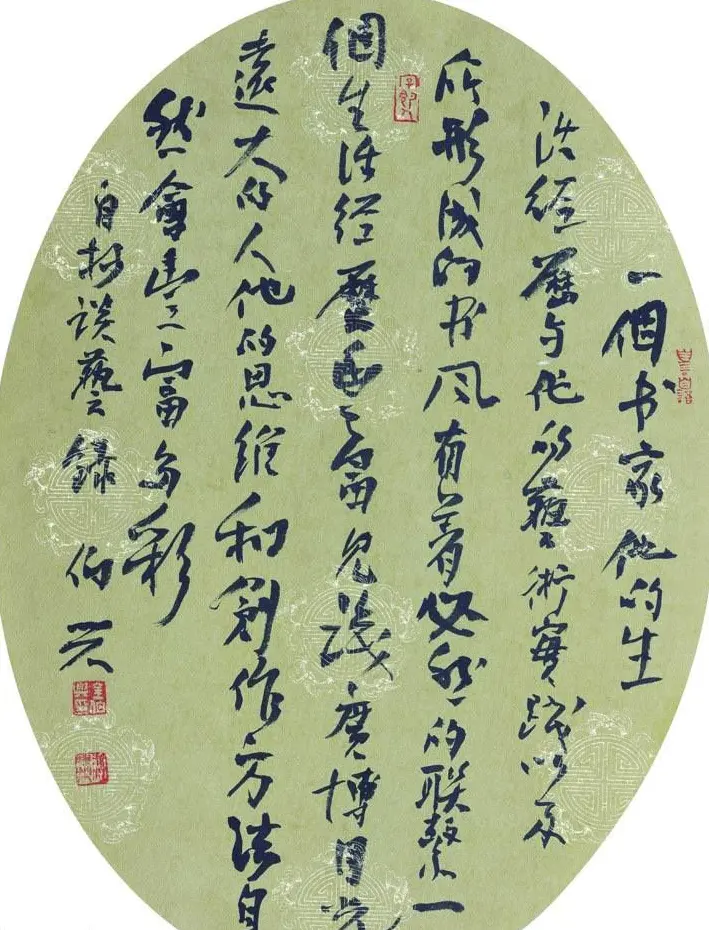 一個书家他的生
活经歷与他的藝術實践以及
所形成的书风有着必然的联繫一
個生活经歷丰富见識廣博目光
遠大的人他的思维和創作方法自
然會丰富多彩
自 谈藝錄 伯兴